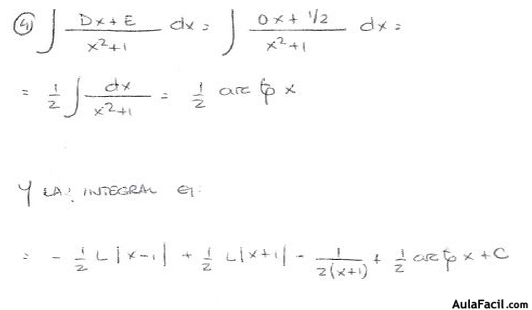 ④ ∫ Dx + E / x²+1 dx = ∫ 0x + 1/2 / x²+1 dx =
= 1/2 ∫ dx / x²+1 = 1/2 arc tg x
Y LA INTEGRAL ES:
= - 1/2 L|x-1| + 1/2 L|x+1| - 1/2(x+1) + 1/2 arc tg x + C
AulaFacil.com